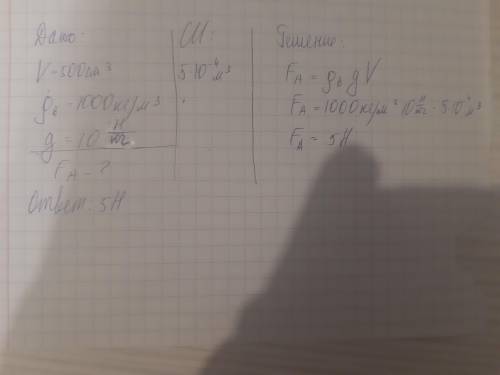 Дано:
V-500см³
ρв-1000кг/м³
g=10 Н/кг.
FA-?
Ответ: 5Н
СИ:
5·10⁻⁴м³
Решение:
FA=ρв g V
FA=1000кг/м³·10 Н/кг·5·10⁻⁴м³
FA=5Н